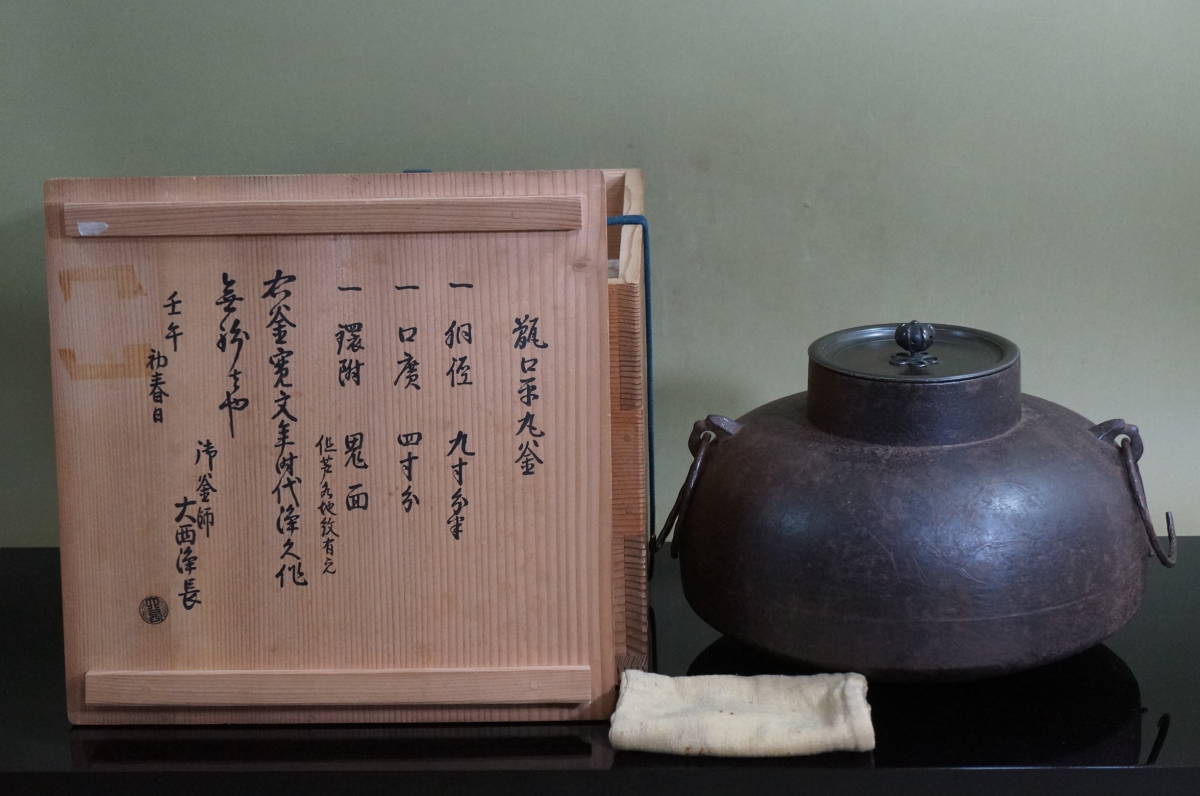 甑口平丸釜
一 胴径 九寸分半
一 口廣 四寸分
一 鐶附 鬼面
但芦名地紋有之
右釜寛文年時代浄久作
無紛者也
壬午
初春日
御釜師
大西浄長